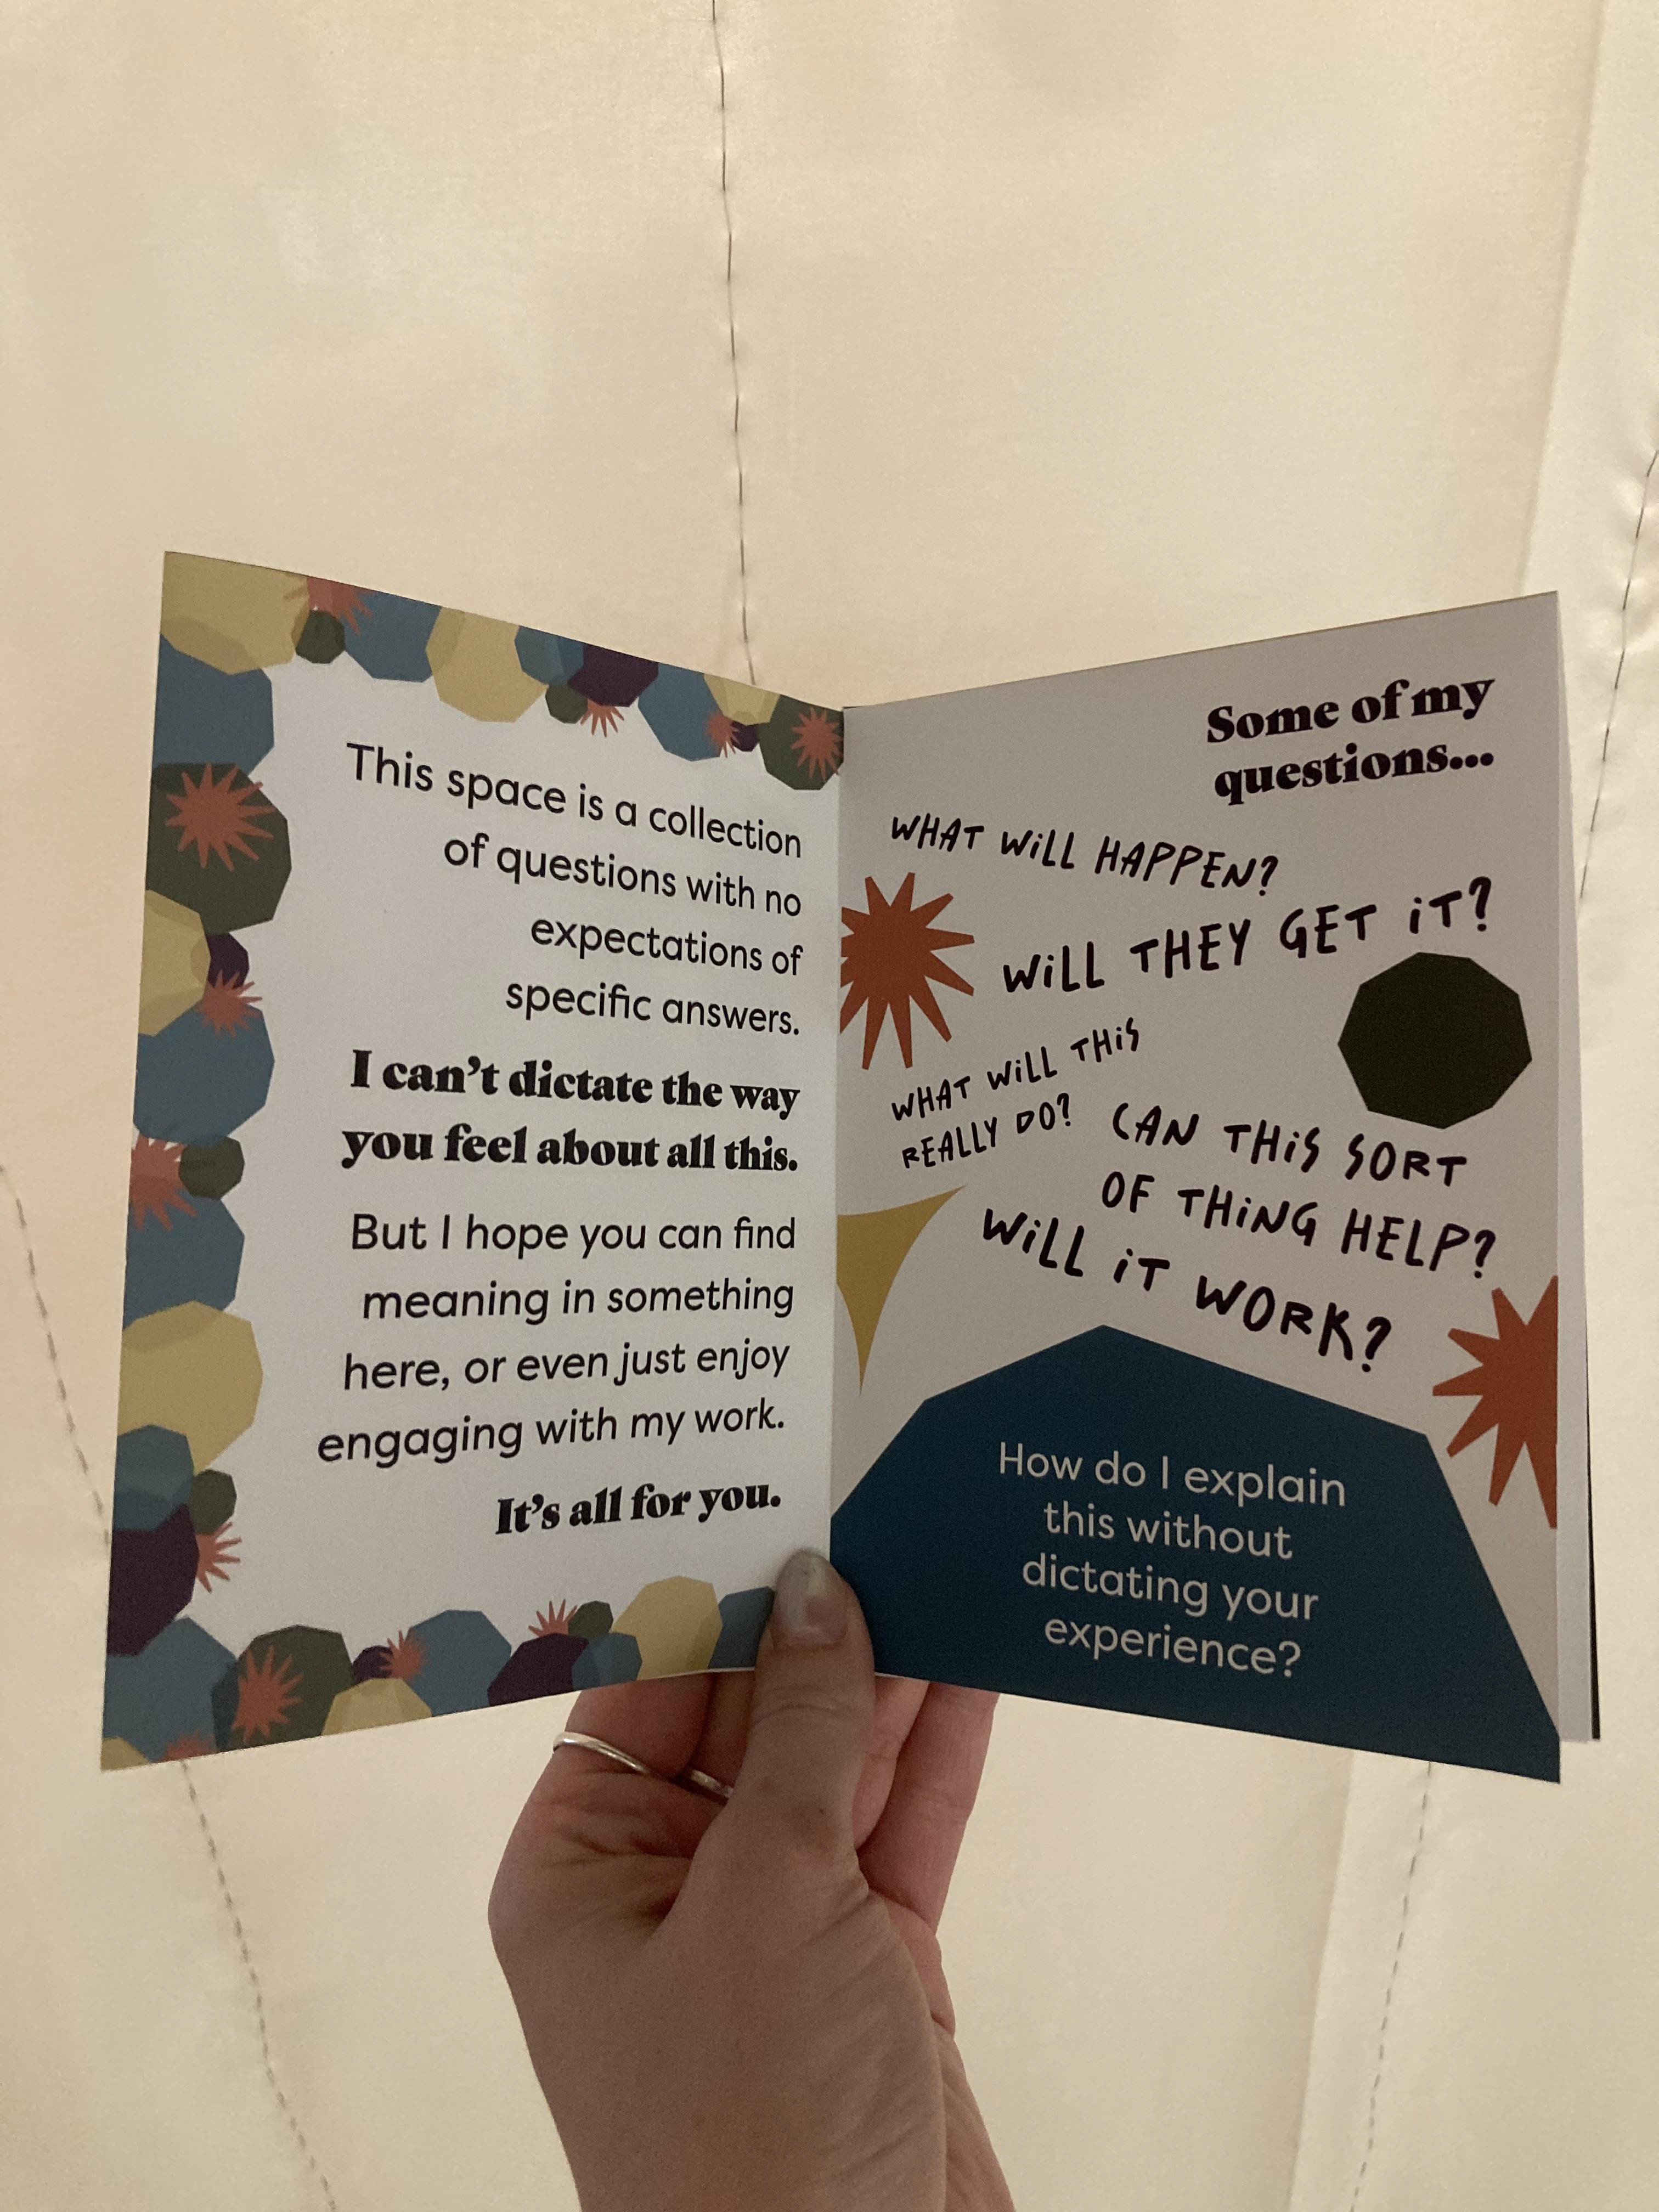 This space is a collection
of questions with no
expectations of
specific answers.
I can't dictate the way
you feel about all this.
But I hope you can find
meaning in something
here, or even just enjoy
engaging with my work.
It's all for you.
Some of my
questions...
WHAT WiLL HAPPEN?
WiLL THEY GET iT?
WHAT WiLL THiS
REALLY DO?
CAN THiS SORT
OF THiNG HELP?
WiLL iT WORK?
How do I explain
this without
dictating your
experience?